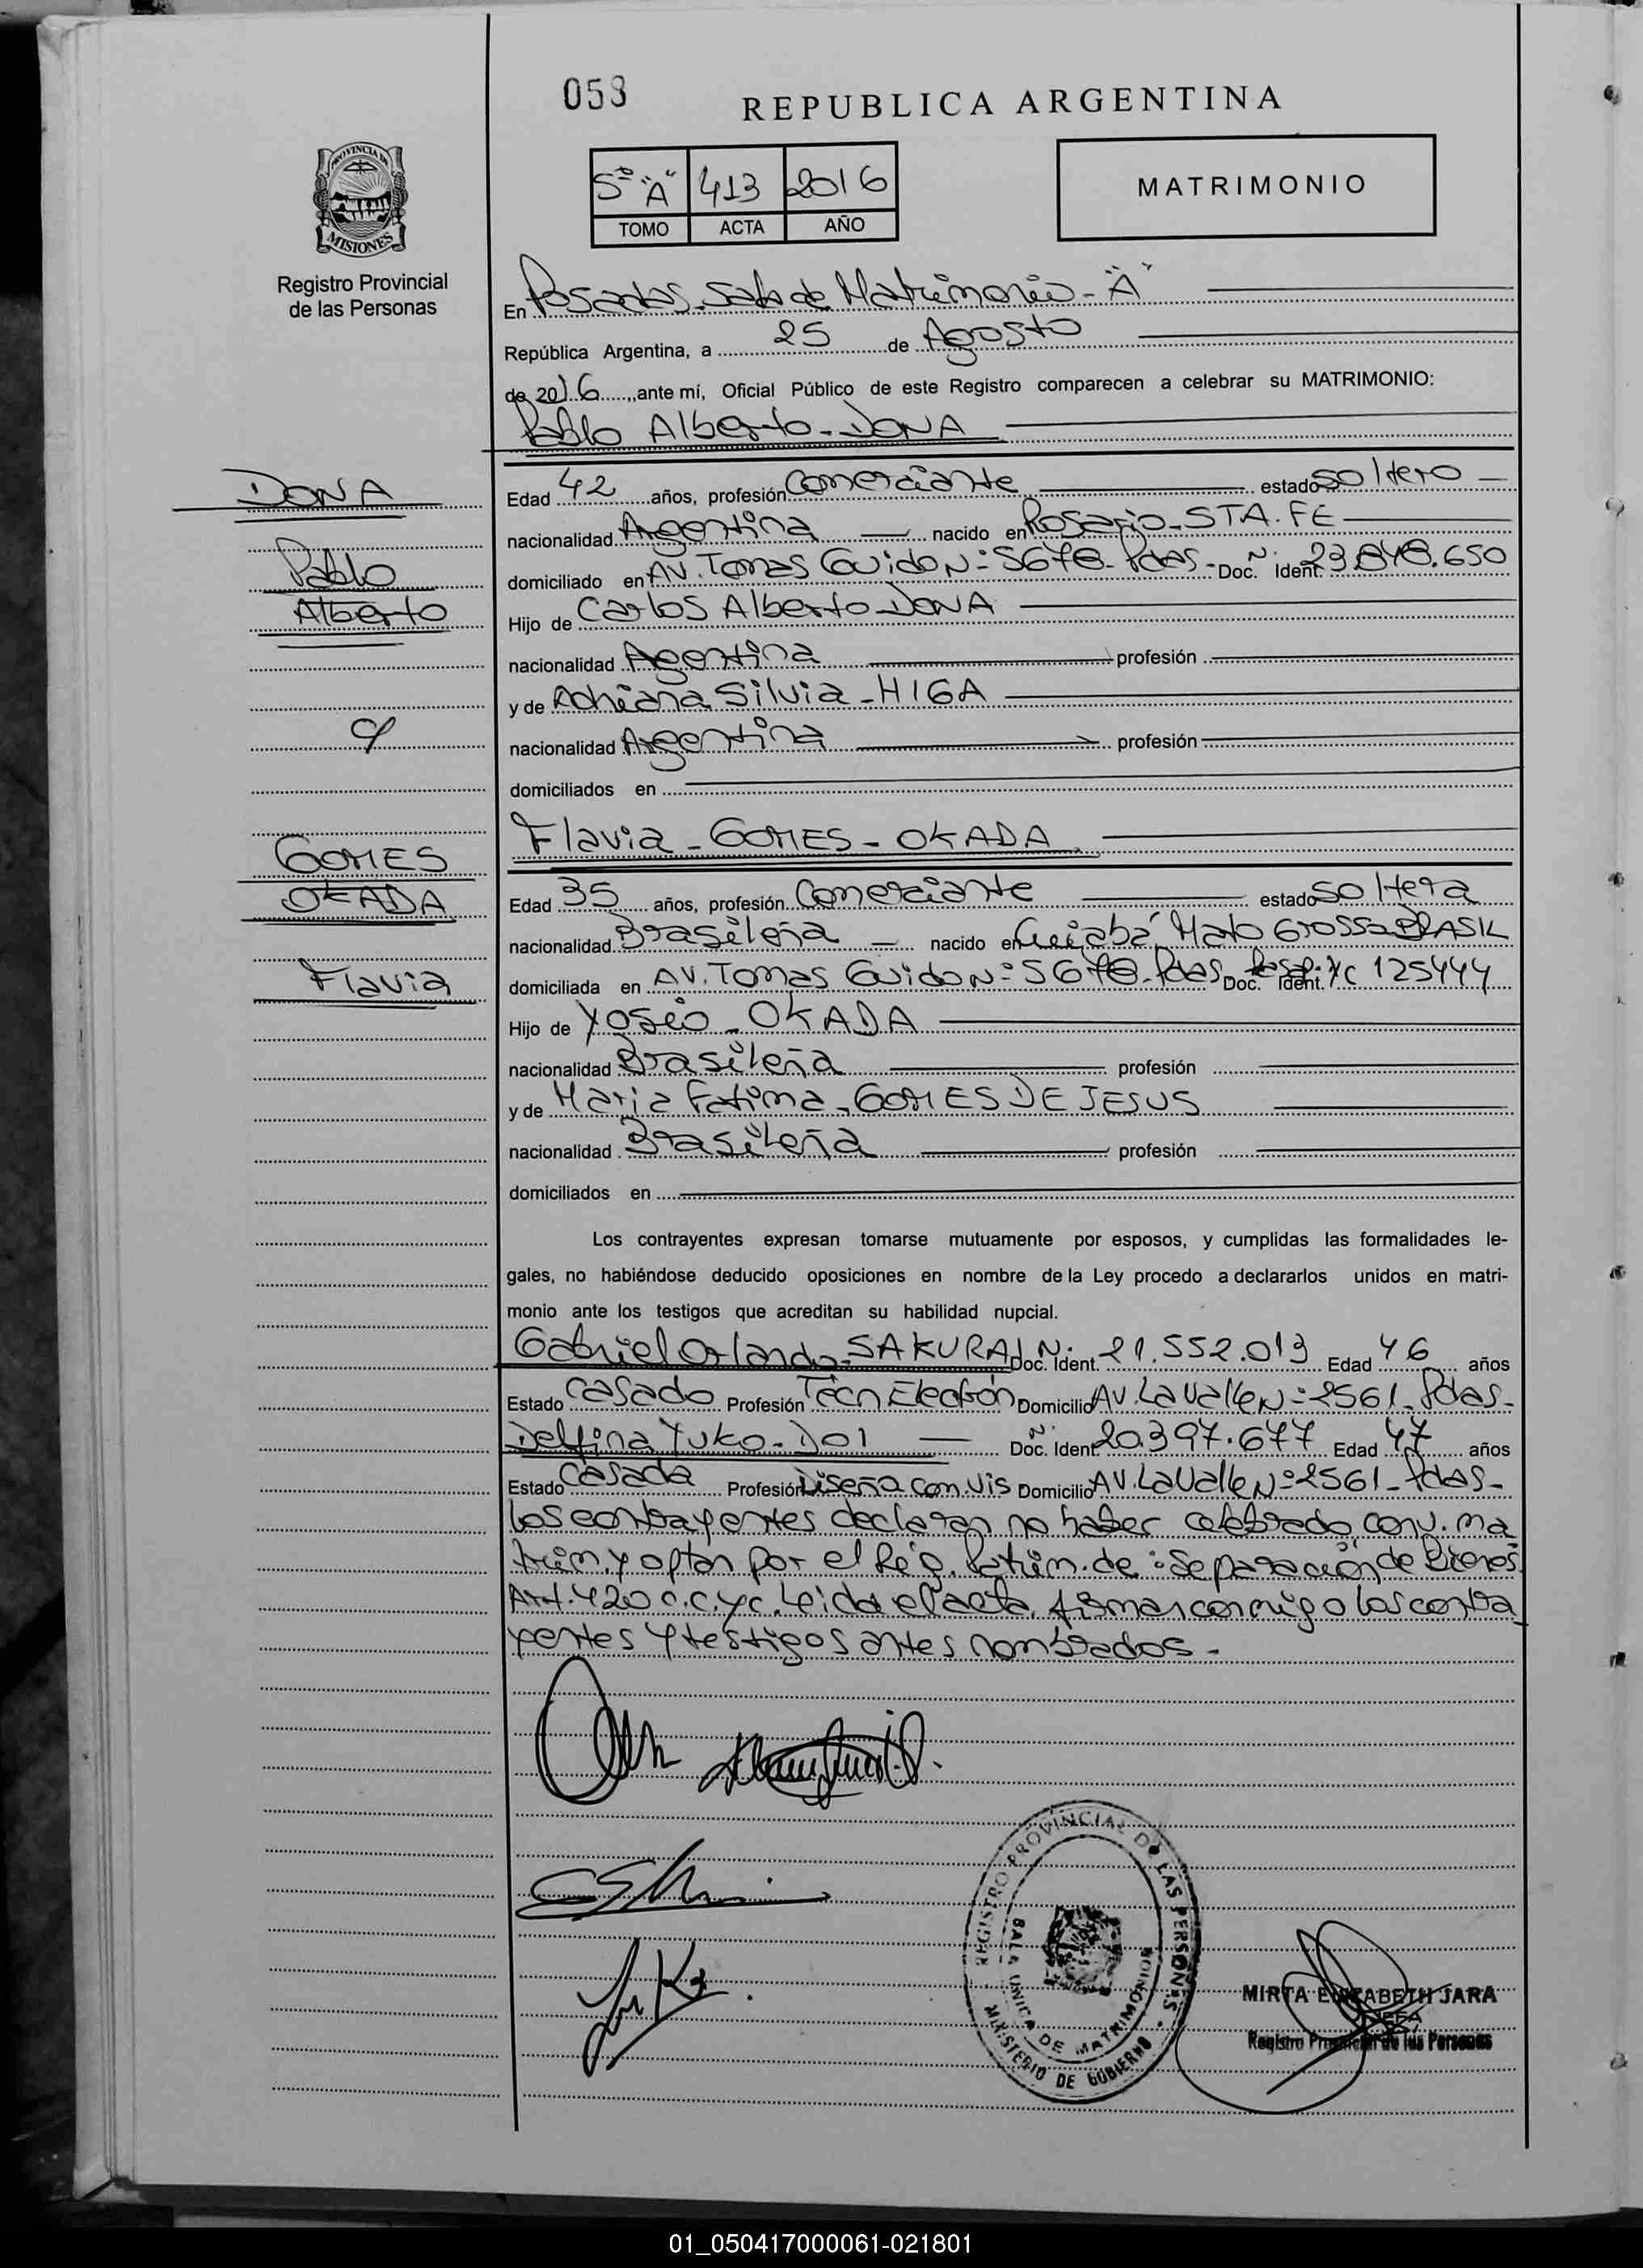 058
REPUBLICA ARGENTINA
PROVINCIA DE
MISIONES
Registro Provincial
de las Personas
5º "A" 413 2016
TOMO ACTA AÑO
MATRIMONIO
En Posadas-Sala de Matrimonio-"A"
República Argentina, a 25 de Agosto
de 2016, ante mí, Oficial Público de este Registro comparecen a celebrar su MATRIMONIO:
Pablo Alberto-DONA
DONA
Pablo
Alberto
c/
GOMES
OKADA
Flavia
Edad 42 años, profesión Comerciante estado soltero
nacionalidad Argentina nacido en Rosario-STA.FE
domiciliado en AV.Tomas Guido Nº 5678-Pdas- Doc. Ident. Nº 23.848.650
Hijo de Carlos Alberto DONA
nacionalidad Argentina profesión
y de Adriana Silvia-HIGA
nacionalidad Argentina profesión
domiciliados en
Flavia-GOMES-OKADA
Edad 35 años, profesión Comerciante estado soltera
nacionalidad Brasileña nacido en Cuiabá Mato Grosso BRASIL
domiciliada en AV.Tomas Guido Nº 5678-Pdas Doc. Ident. YC 125444
Hijo de Yosio-OKADA
nacionalidad Brasileña profesión
y de Maria Fatima-GOMES DE JESUS
nacionalidad Brasileña profesión
domiciliados en
Los contrayentes expresan tomarse mutuamente por esposos, y cumplidas las formalidades le-
gales, no habiéndose deducido oposiciones en nombre de la Ley procedo a declararlos unidos en matri-
monio ante los testigos que acreditan su habilidad nupcial.
Gabriel Orlando-SAKURAI Doc. Ident. Nº 21.552.013 Edad 46 años
Estado Casado Profesión Técn Electrón Domicilio AV.Lavalle Nº 2561-Pdas-
Delfina Yuko-DOI Doc. Ident. Nº 20.397.677 Edad 47 años
Estado Casada Profesión Diseña com.vis Domicilio AV.Lavalle Nº 2561-Pdas-
los contrayentes declaran no haber celebrado conv. ma
trim. y optan por el Rég. Patrim. de: Separación de Bienes
Art.420 C.C.yC. Leida el acta, firman conmigo los contra
yentes y testigos antes nombrados-
REGISTRO PROVINCIAL DE LAS PERSONAS
SALA UNICA DE MATRIMONIOS
MINISTERIO DE GOBIERNO
MIRTA ELIZABETH JARA
JEFA
Registro Provincial de las Personas
01_050417000061-021801